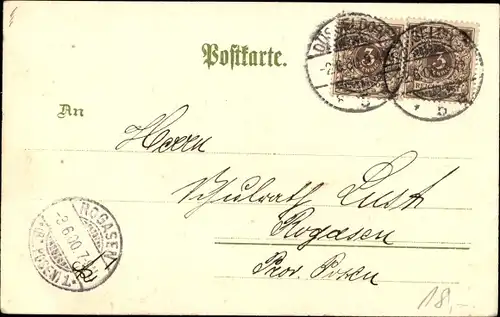 Postkarte.
DÜSSELDORF
3
3
An
Herrn
Schulrath Lust
Rogasen
Prov. Posen
ROGASEN
-3.6.00.7-
18,-